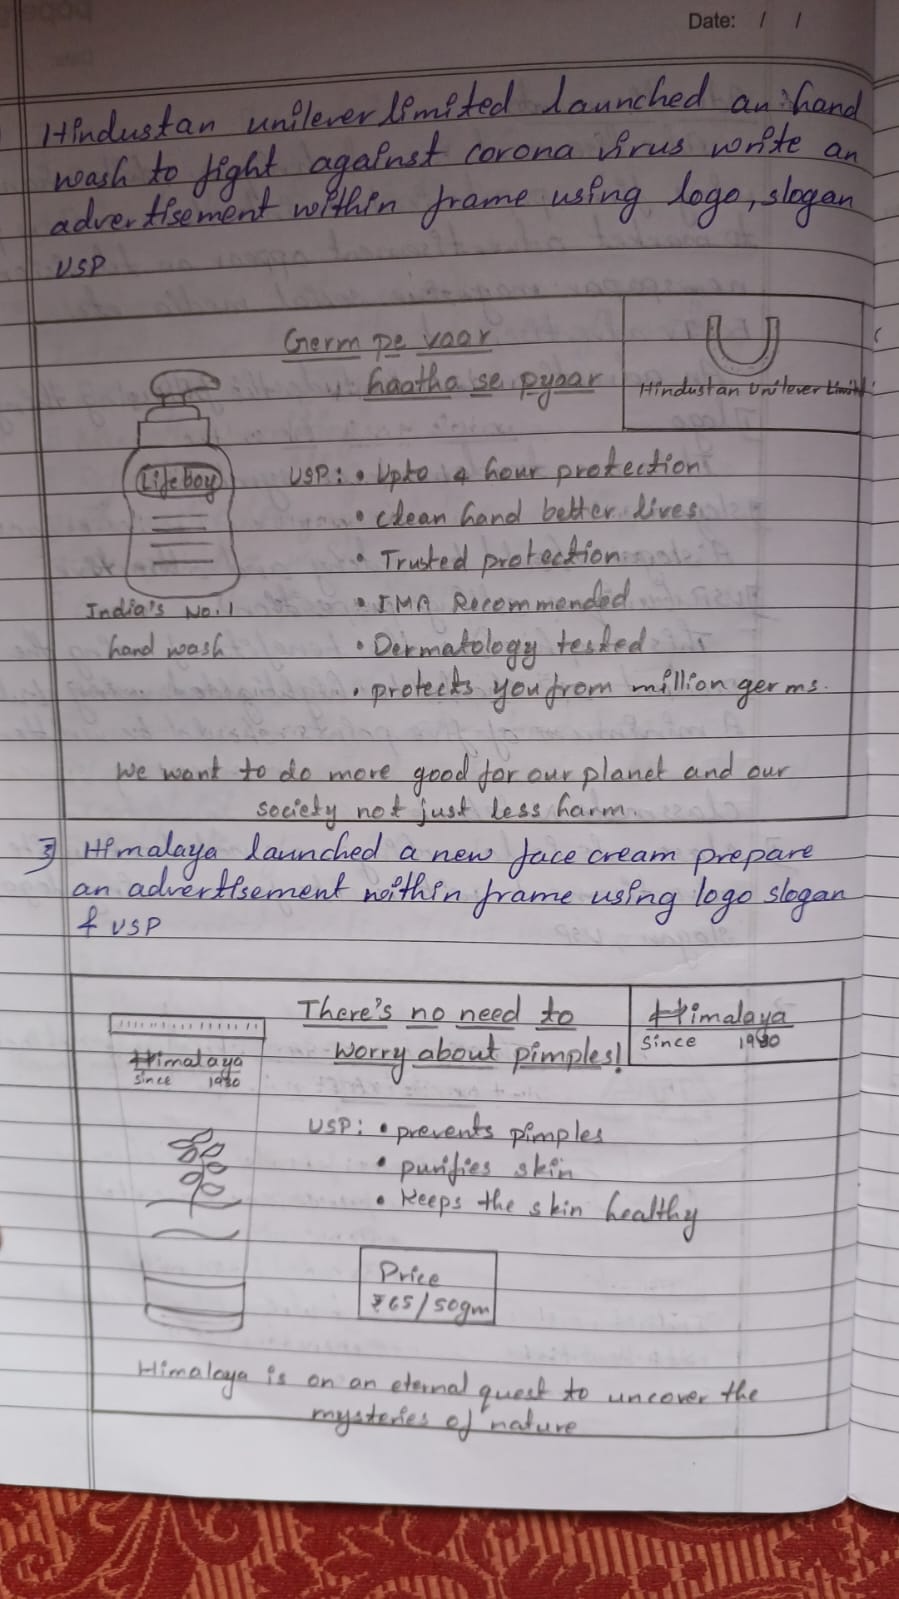 Date: / /
Hindustan unilever limited launched an hand
wash to fight against corona virus write an
advertisement within frame using logo, slogan
USP
Germ pe vaar
haatho se pyaar
Hindustan Unilever Limited
Lifeboy
USP: • Upto 4 hour protection
• clean hand better lives
• Trusted protection
• IMA Recommended
• Dermatology tested
• protects you from million germs.
India's No.1
hand wash
We want to do more good for our planet and our
society not just less harm.
3) Himalaya launched a new face cream prepare
an advertisement within frame using logo slogan
& USP
There's no need to
worry about pimples!
Himalaya
Since 1930
Himalaya
Since 1930
USP: • prevents pimples
• purifies skin
• Keeps the skin healthy
Price
₹65/50gm
Himalaya is on an eternal quest to uncover the
mysteries of nature